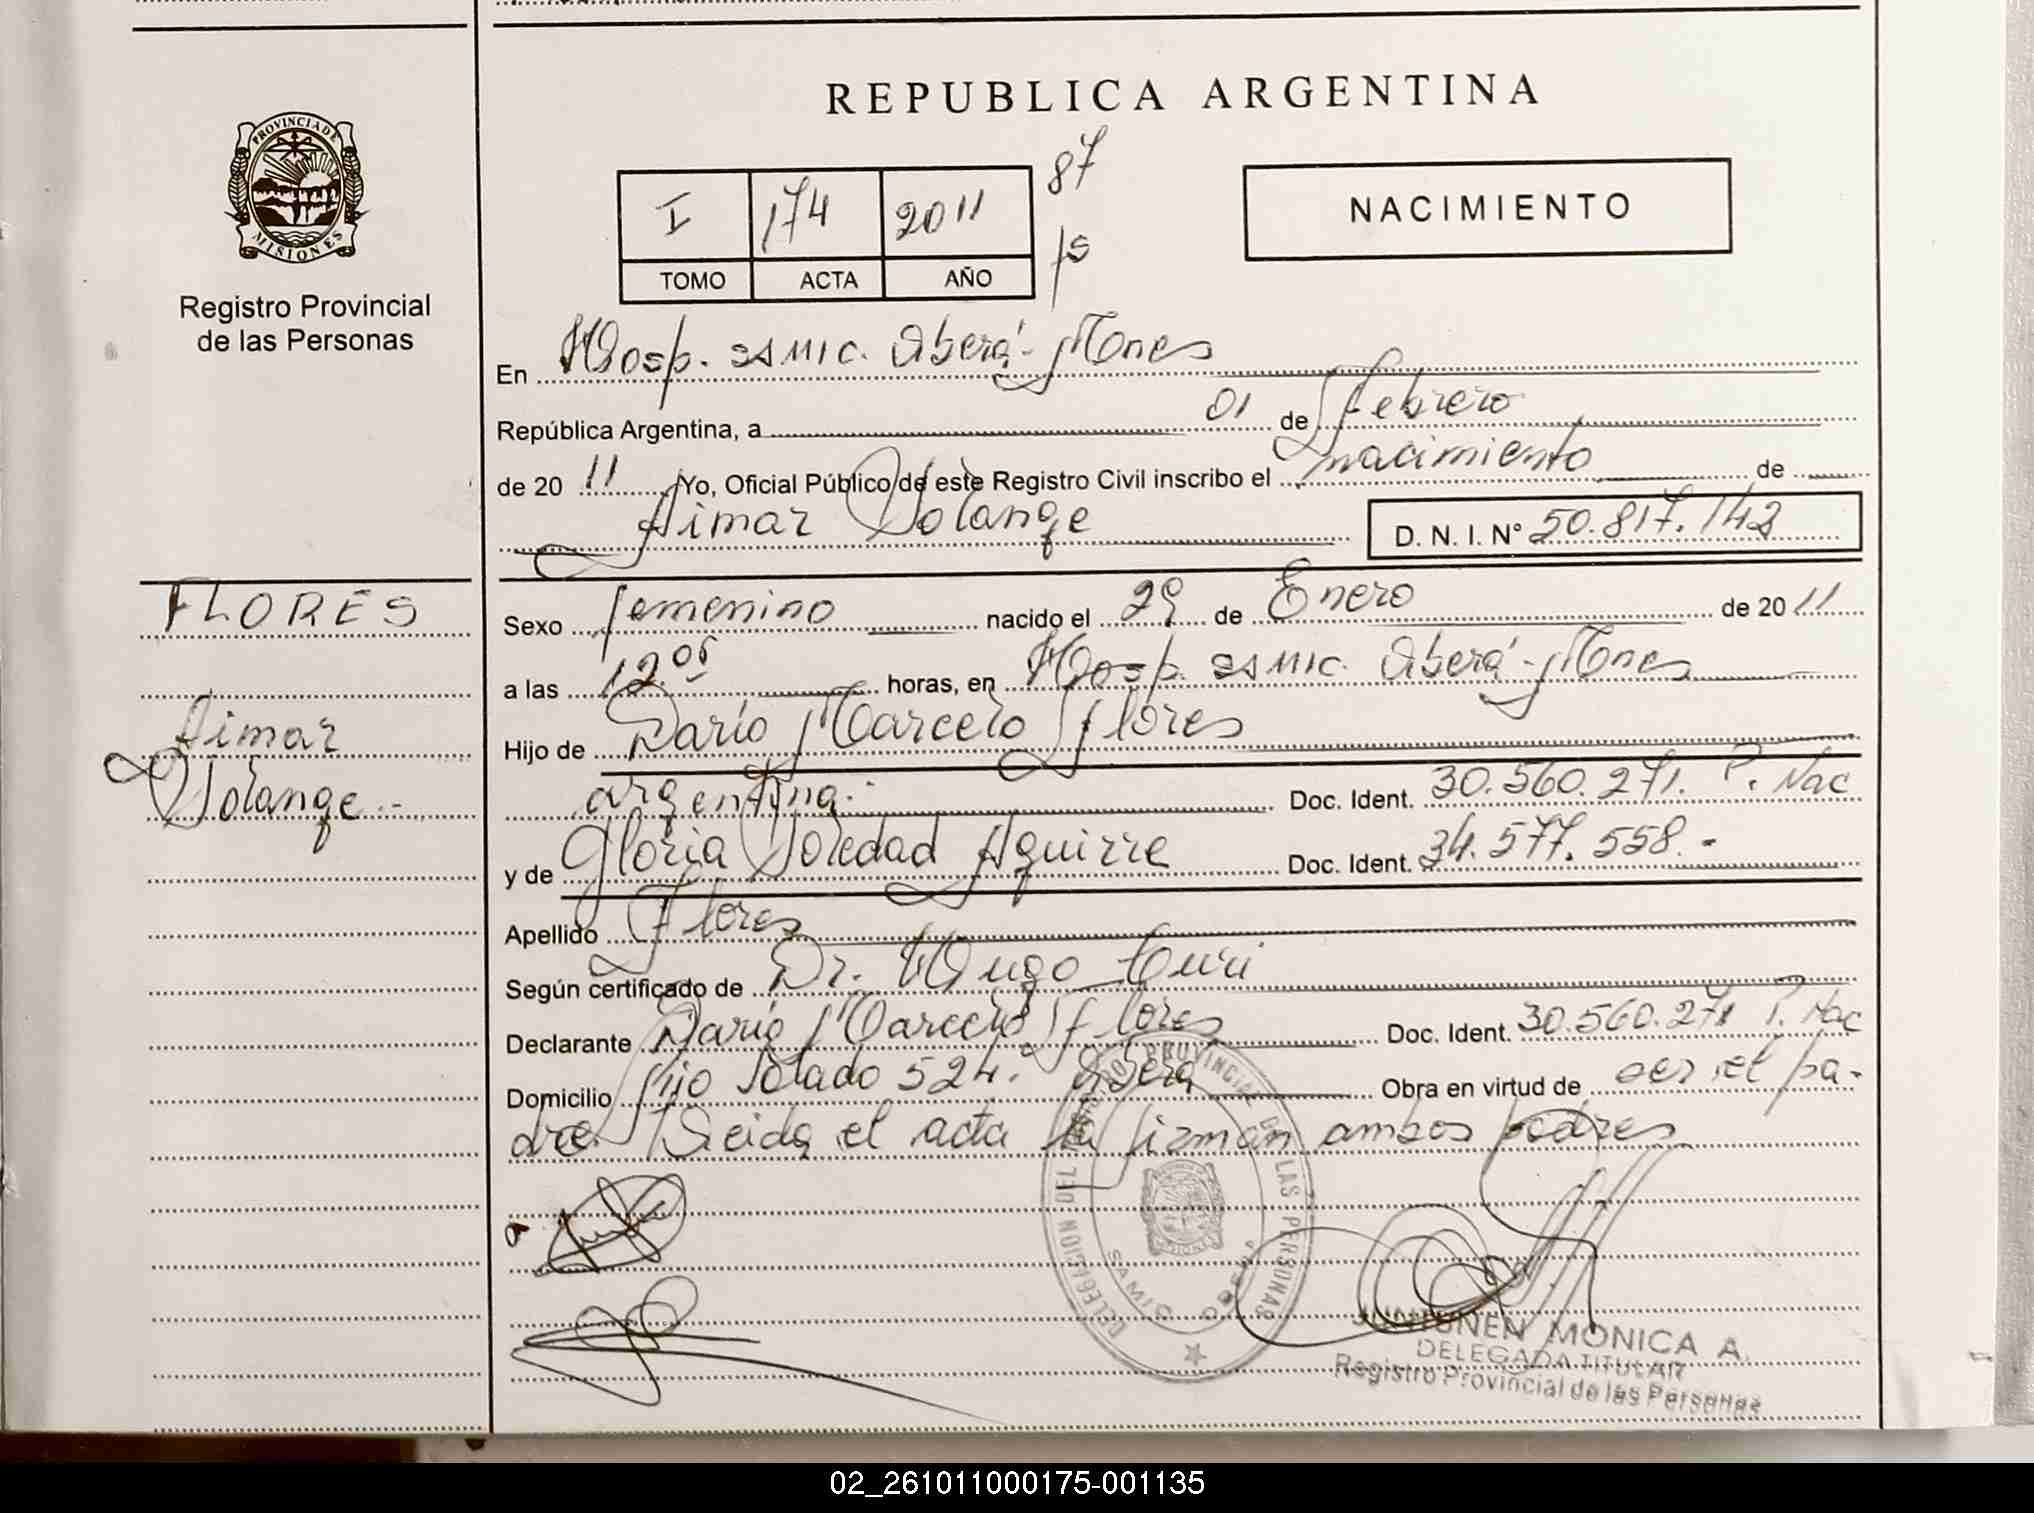 REPUBLICA ARGENTINA
PROVINCIA DE
MISIONES
Registro Provincial
de las Personas
I 174 2011 87
TOMO ACTA AÑO
NACIMIENTO
En Hosp. SAMIC. Oberá-Mnes
República Argentina, a 01 de Febrero
de 20 11 Yo, Oficial Público de este Registro Civil inscribo el nacimiento de
Aimar Solange D. N. I. N° 50.817.142
FLORES
Aimar
Solange.-
Sexo femenino nacido el 29 de Enero de 20 11
a las 12.05 horas, en Hosp. SAMIC. Oberá-Mnes
Hijo de Darío Marcelo Flores
argentina.- Doc. Ident. 30.560.271. P. Nac
y de Gloria Soledad Aguirre Doc. Ident. 34.577.558.-
Apellido Flores
Según certificado de Dr. Hugo Curi
Declarante Darío Marcelo Flores Doc. Ident. 30.560.271 P. Nac
Domicilio 524. Oberá Obra en virtud de ser el pa-
dre. Leida el acta la firman ambos padres
DELEGACION DEL REGISTRO PROVINCIAL DE LAS PERSONAS
SAMIC OBERA
MISIONES
JUNTUNEN MONICA A.
DELEGADA TITULAR
Registro Provincial de las Personas
02_261011000175-001135